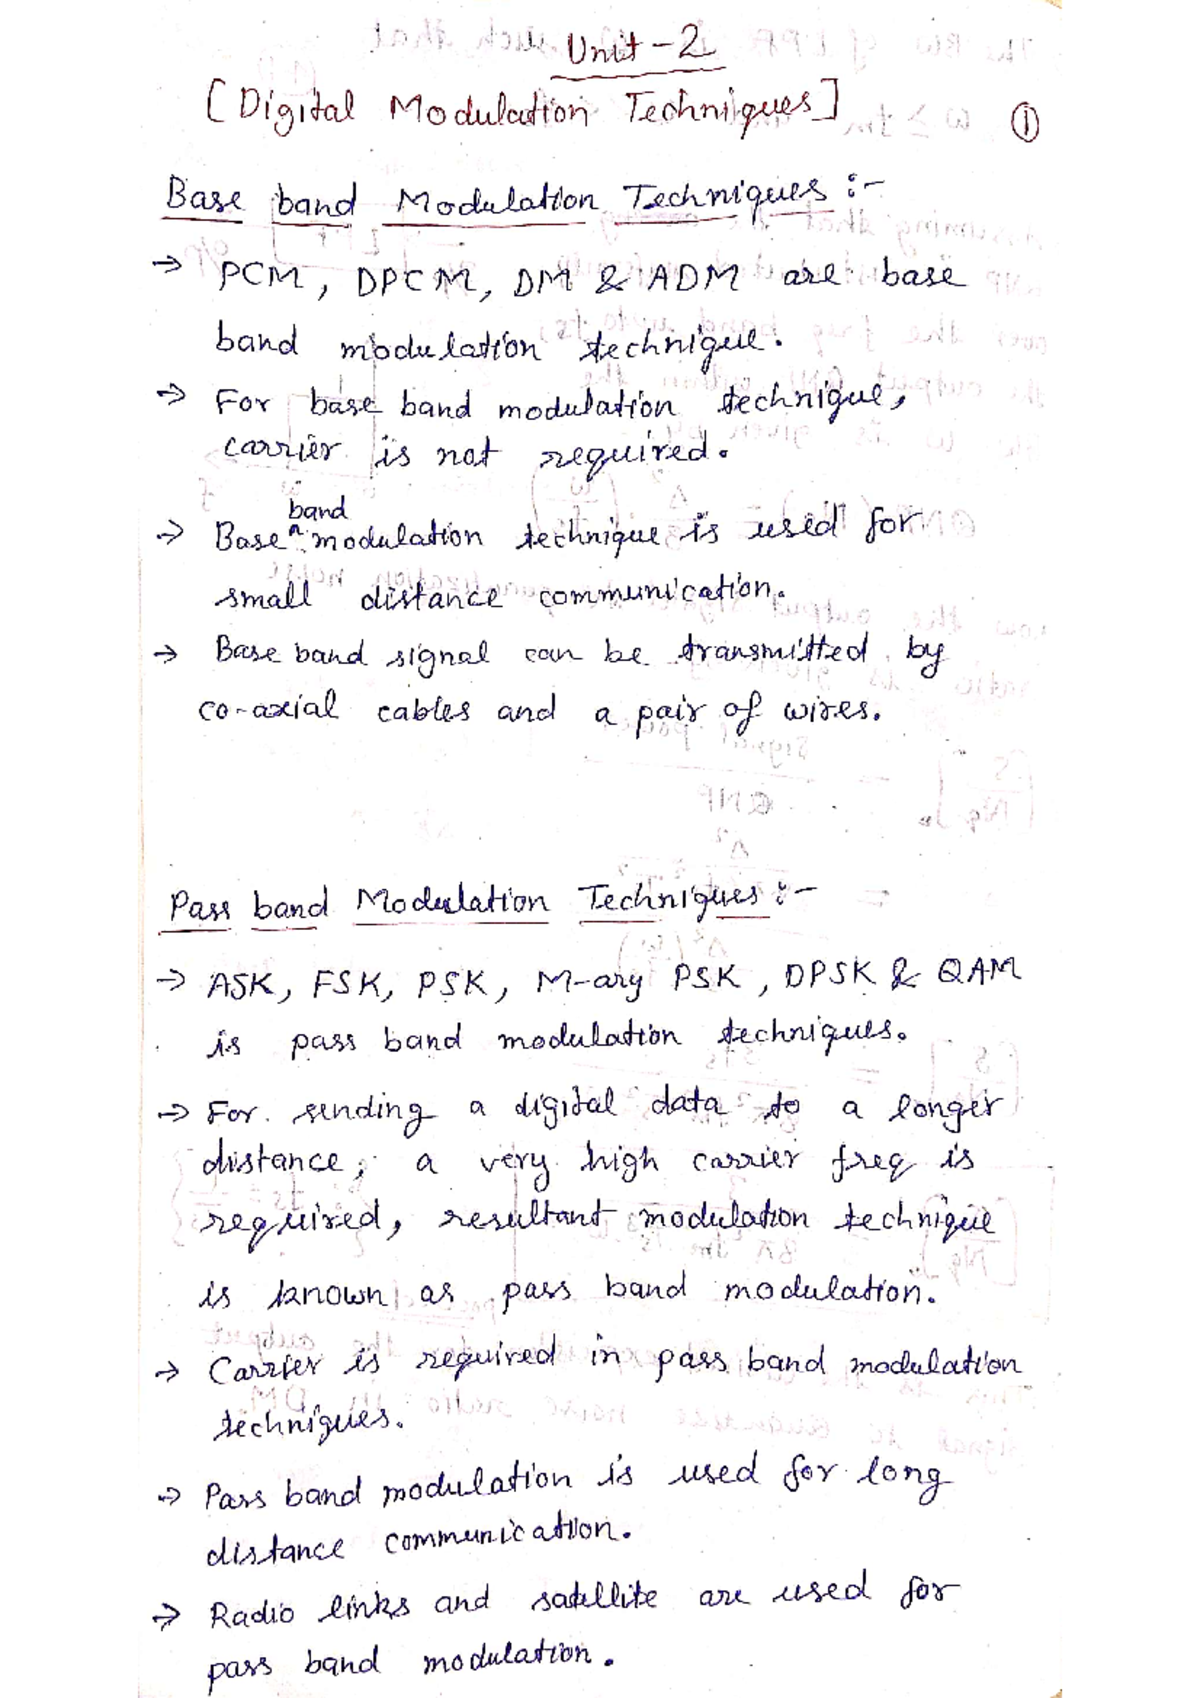 Unit-2
[Digital Modulation Techniques]
①
Base band Modulation Techniques :-
→ PCM, DPCM, DM & ADM are base
band modulation technique.
→ For base band modulation technique,
carrier is not required.
band
→ Base ^ modulation technique is used for
small distance communication.
→ Base band signal can be transmitted by
co-axial cables and a pair of wires.
Pass band Modulation Techniques :-
→ ASK, FSK, PSK, M-ary PSK, DPSK & QAM
is pass band modulation techniques.
→ For sending a digital data to a longer
distance, a very high carrier freq is
required, resultant modulation technique
is known as pass band modulation.
→ Carrier is required in pass band modulation
techniques.
→ Pass band modulation is used for long
distance communication.
→ Radio links and satellite are used for
pass band modulation.